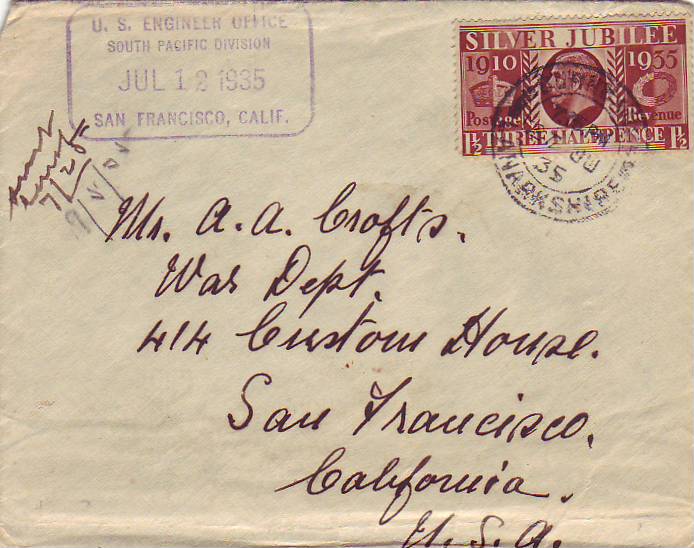 U. S. ENGINEER OFFICE
SOUTH PACIFIC DIVISION
JUL 12 1935
SAN FRANCISCO, CALIF.
SILVER JUBILEE
1910 1935
Postage Revenue
1½ THREE HALFPENCE 1½
35
7/25
Mr. A. A. Crofts.
War Dept.
414 Custom House.
San Francisco.
California.
U. S. A.